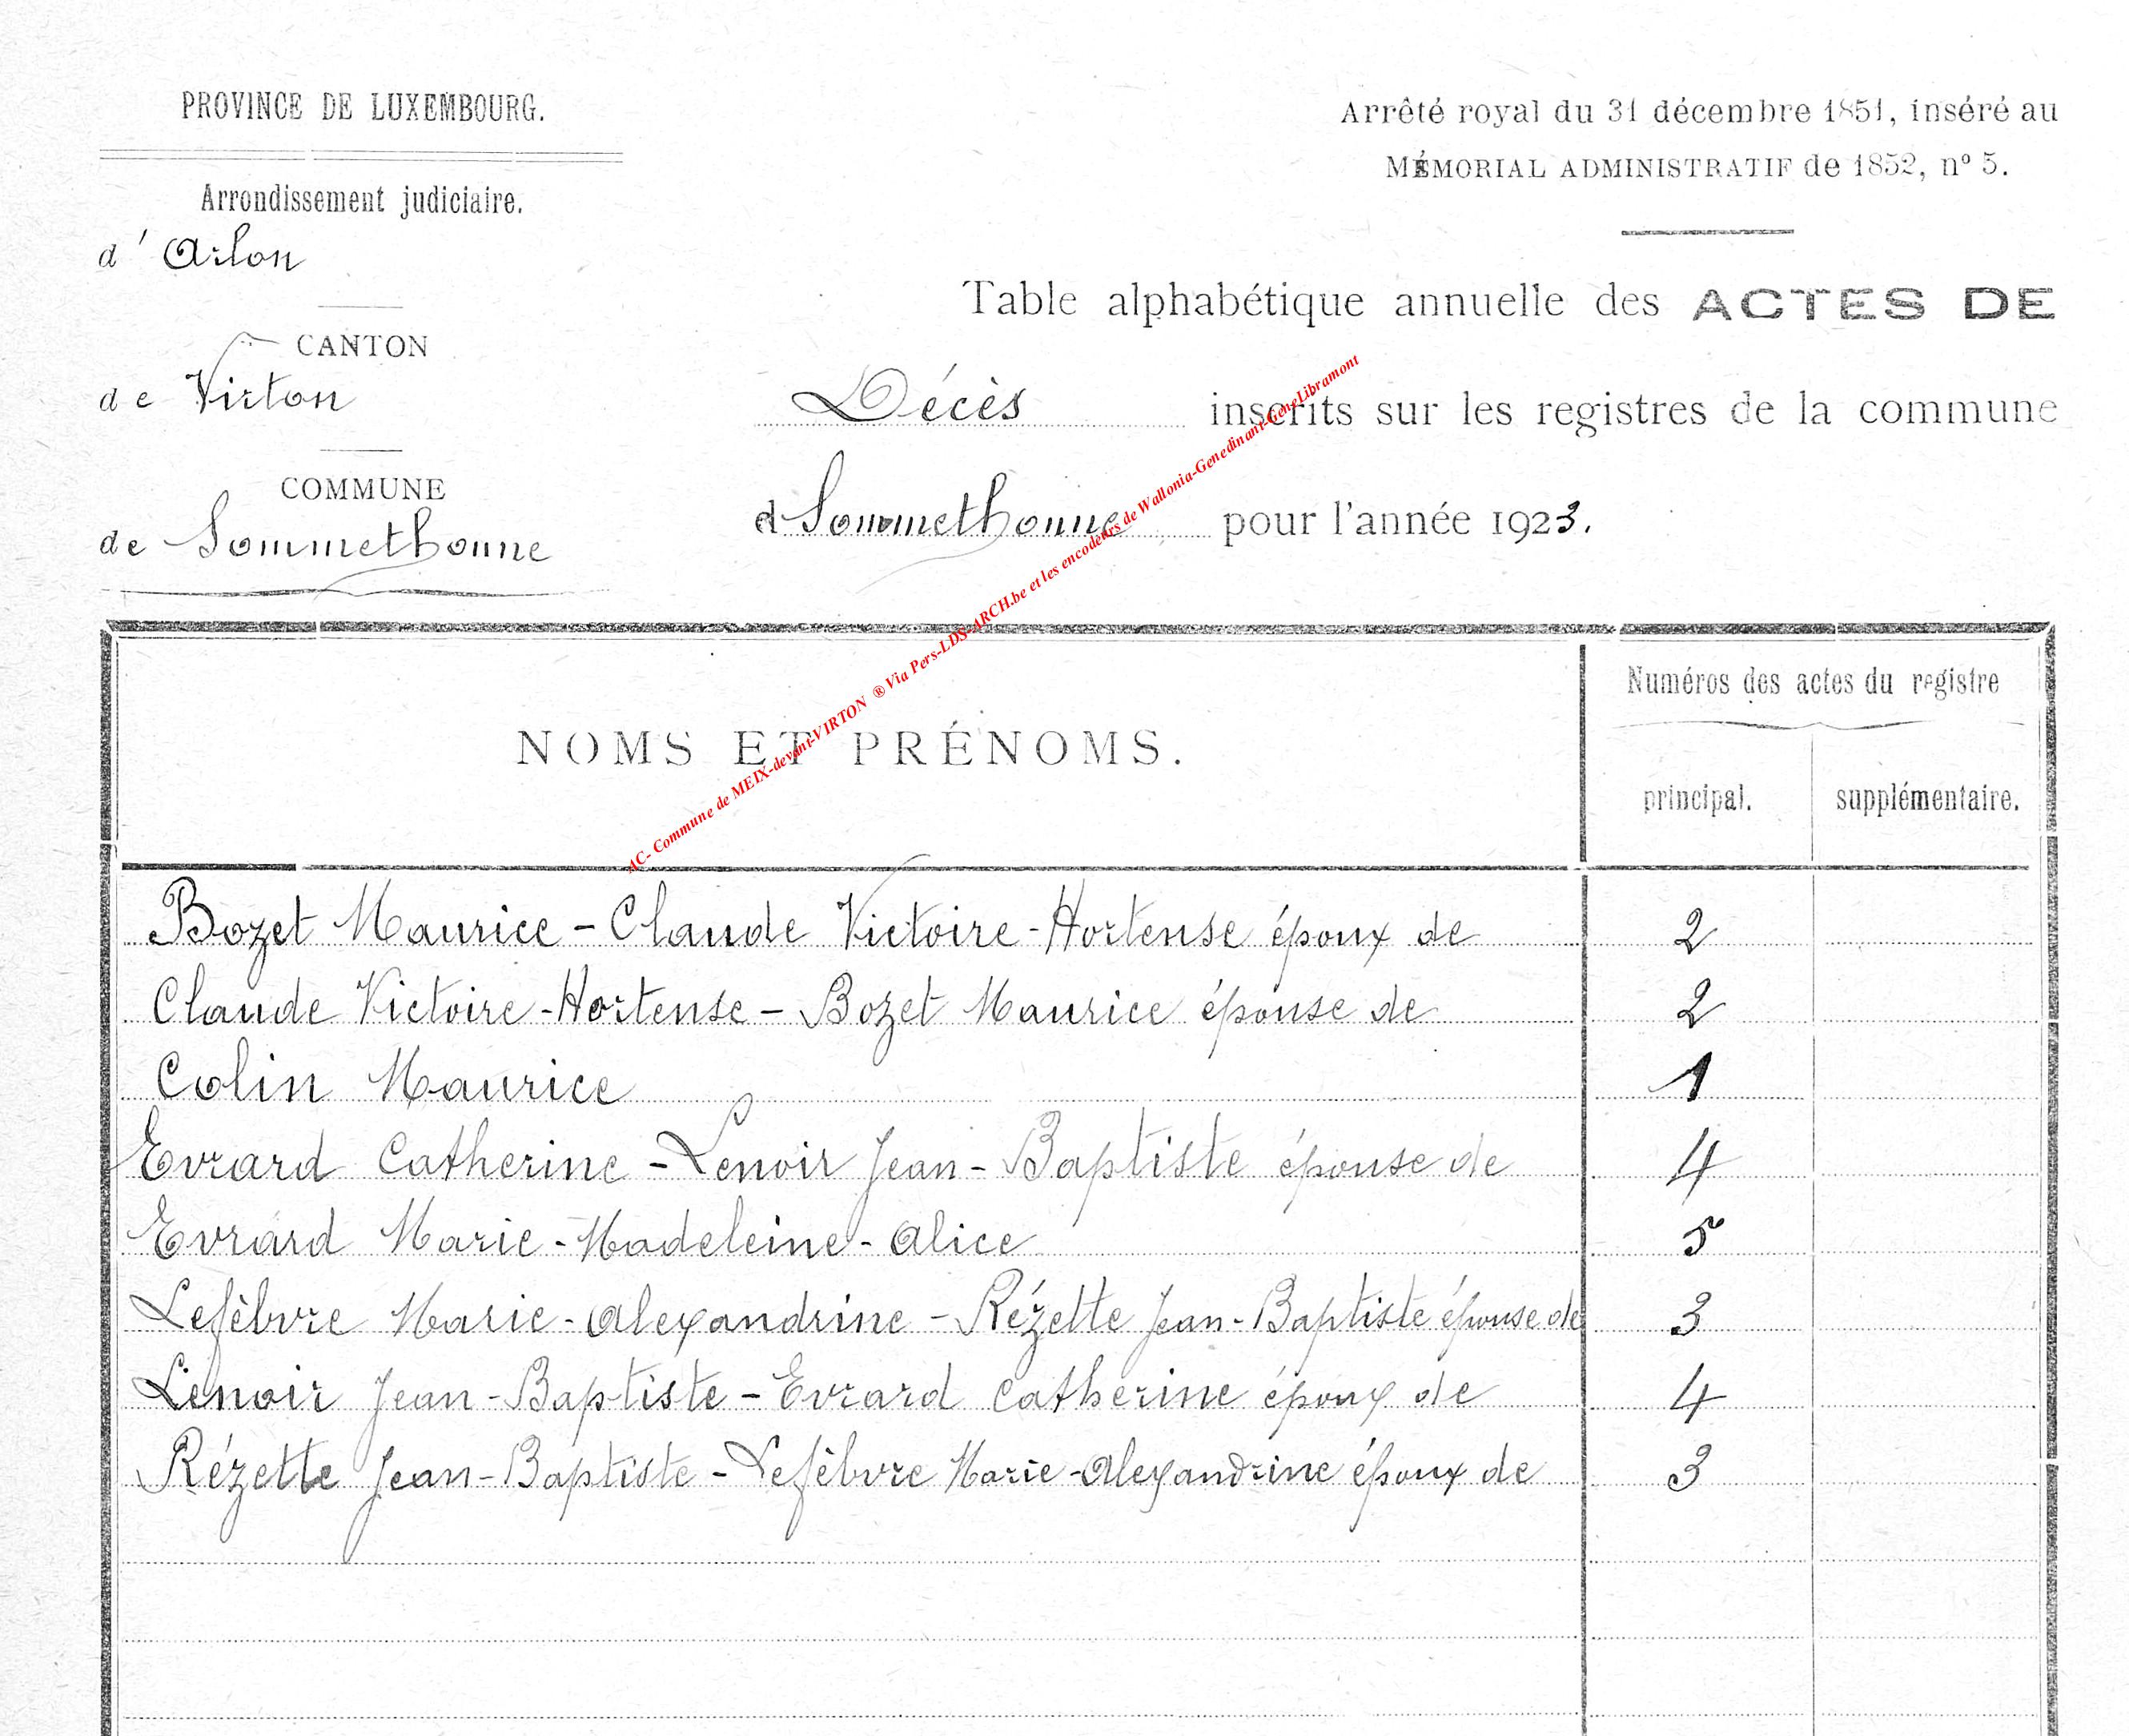 PROVINCE DE LUXEMBOURG.
Arrondissement judiciaire.
d' Arlon
CANTON
de Virton
COMMUNE
de Sommethonne
Arrêté royal du 31 décembre 1851, inséré au
MÉMORIAL ADMINISTRATIF de 1852, nº 5.
Table alphabétique annuelle des ACTES DE
Décès inscrits sur les registres de la commune
d Sommethonne pour l'année 1923.
AC- Commune de MEIX-devant-VIRTON ® Via Pers-LDS-ARCH.be et les encodeurs de Wallonia-Genedinant-GeneLibramont
NOMS ET PRÉNOMS.
Numéros des actes du registre
principal. supplémentaire.
Bozet Maurice - Claude Victoire-Hortense époux de 2
Claude Victoire-Hortense - Bozet Maurice épouse de 2
Colin Maurice 1
Evrard Catherine - Lenoir Jean-Baptiste épouse de 4
Evrard Marie-Madeleine-Alice 5
Lefèbvre Marie-Alexandrine - Rézette Jean-Baptiste épouse de 3
Lenoir Jean-Baptiste - Evrard Catherine époux de 4
Rézette Jean-Baptiste - Lefèbvre Marie-Alexandrine époux de 3